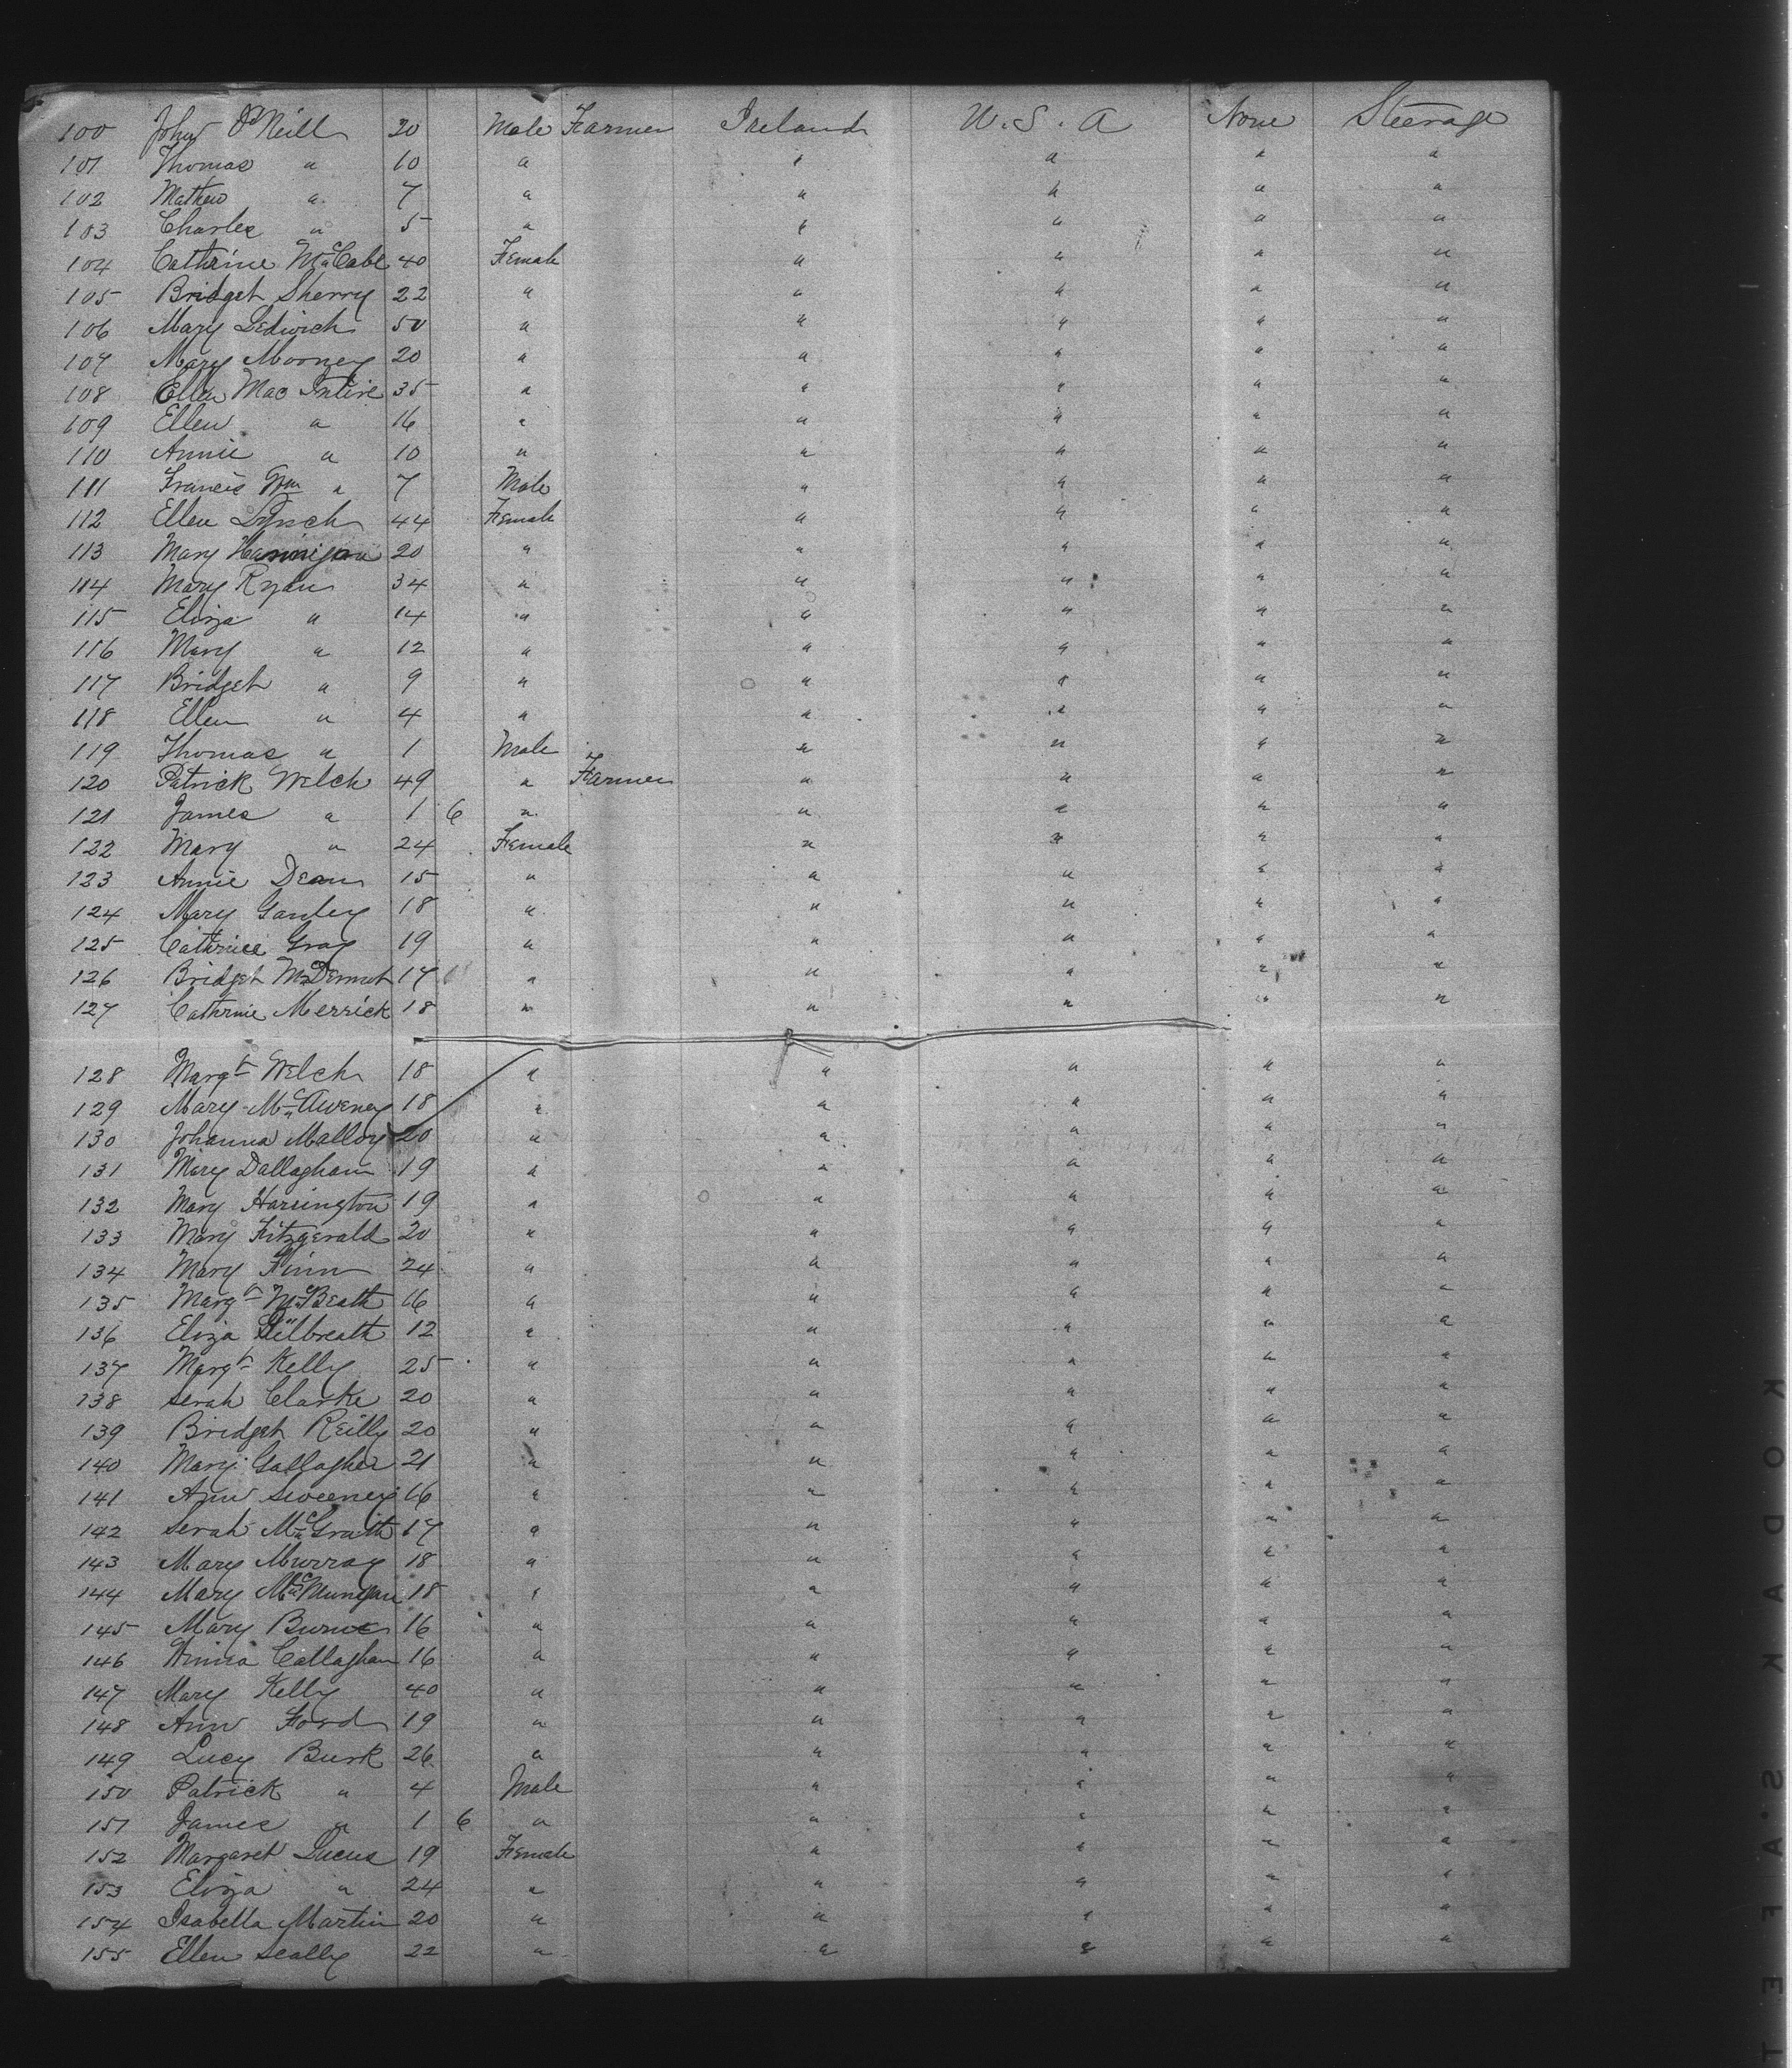 100 John O'Neill 20 Male Farmer Ireland U.S.A None Steerage
101 Thomas " 10 " " " " "
102 Mathew " 7 " " " " "
103 Charles " 5 " " " " "
104 Cathrine McCabe 40 Female " " " "
105 Bridget Sherry 22 " " " " "
106 Mary Ledwich 50 " " " " "
107 Mary Mooney 20 " " " " "
108 Ellen Mac Intire 35 " " " " "
109 Ellen " 16 " " " " "
110 Annie " 10 " " " " "
111 Francis Wm " 7 Male " " " "
112 Ellen Lynch 44 Female " " " "
113 Mary Hannigan 20 " " " " "
114 Mary Ryan 34 " " " " "
115 Eliza " 14 " " " " "
116 Mary " 12 " " " " "
117 Bridget " 9 " " " " "
118 Ellen " 4 " " " " "
119 Thomas " 1 Male " " " "
120 Patrick Welch 49 " Farmer " " " "
121 James " 1 6 " " " " "
122 Mary " 24 Female " " " "
123 Annie Dean 15 " " " " "
124 Mary Ganley 18 " " " " "
125 Cathrine Gray 19 " " " " "
126 Bridget McDermot 17 " " " " "
127 Cathrine Merrick 18 " " " " "
128 Margt Welch 18 " " " " "
129 Mary McAweney 18 " " " " "
130 Johanna Malloy 20 " " " " "
131 Mary Dallaghan 19 " " " " "
132 Mary Harrington 19 " " " " "
133 Mary Fitzgerald 20 " " " " "
134 Mary Finn 24 " " " " "
135 Margt McBeath 16 " " " " "
136 Eliza Gilbreath 12 " " " " "
137 Margt Kelly 25 " " " " "
138 Serah Clarke 20 " " " " "
139 Bridget Reilly 20 " " " " "
140 Mary Gallagher 21 " " " " "
141 Ann Sweeney 16 " " " " "
142 Serah McGrath 17 " " " " "
143 Mary Murray 18 " " " " "
144 Mary 18 " " " " "
145 Mary Burne 16 " " " " "
146 Callaghan 16 " " " " "
147 Mary Kelly 40 " " " " "
148 Ann Ford 19 " " " " "
149 Lucy Burk 26 " " " " "
150 Patrick " 4 Male " " " "
151 James " 1 6 " " " " "
152 Margaret Lucus 19 Female " " " "
153 Eliza " 24 " " " " "
154 Isabella Martin 20 " " " " "
155 Ellen Scally 22 " " " " "
KODAK SAFETY